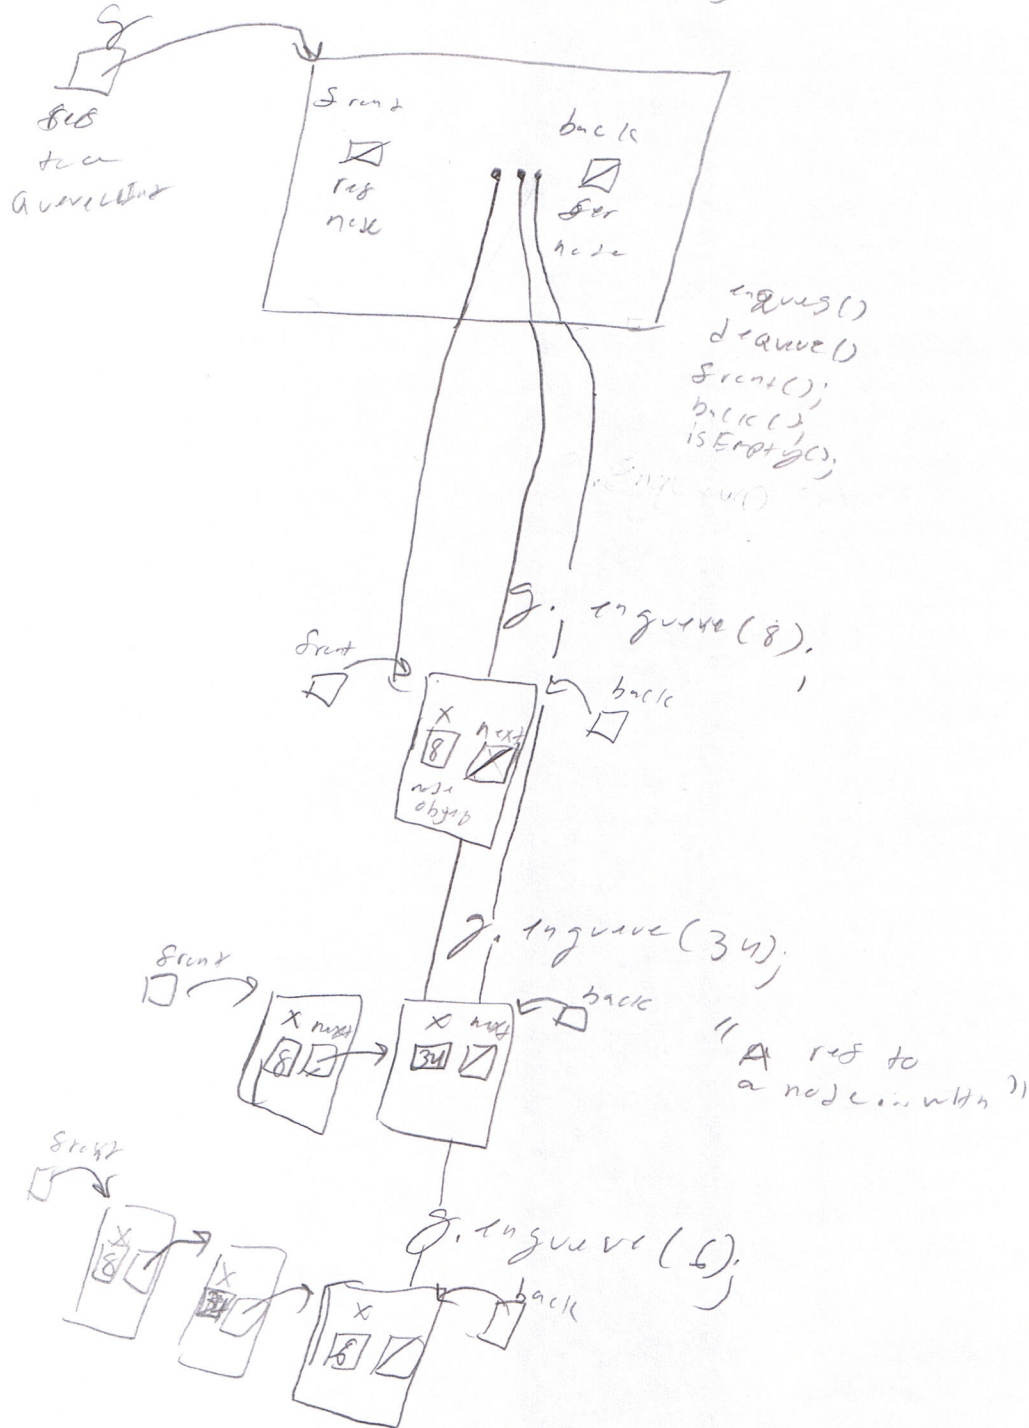 q
ref
to a
QueueLInt
front
ref
node
back
ref
node
enqueue()
dequeue()
front();
back();
isEmpty();
q. enqueue(8);
front
back
x next
8
node
object
q. enqueue(34);
front
back
x next
8
x next
34
"A ref to
a node... within"
front
q. enqueue(6);
back
x
8
x
34
x
6